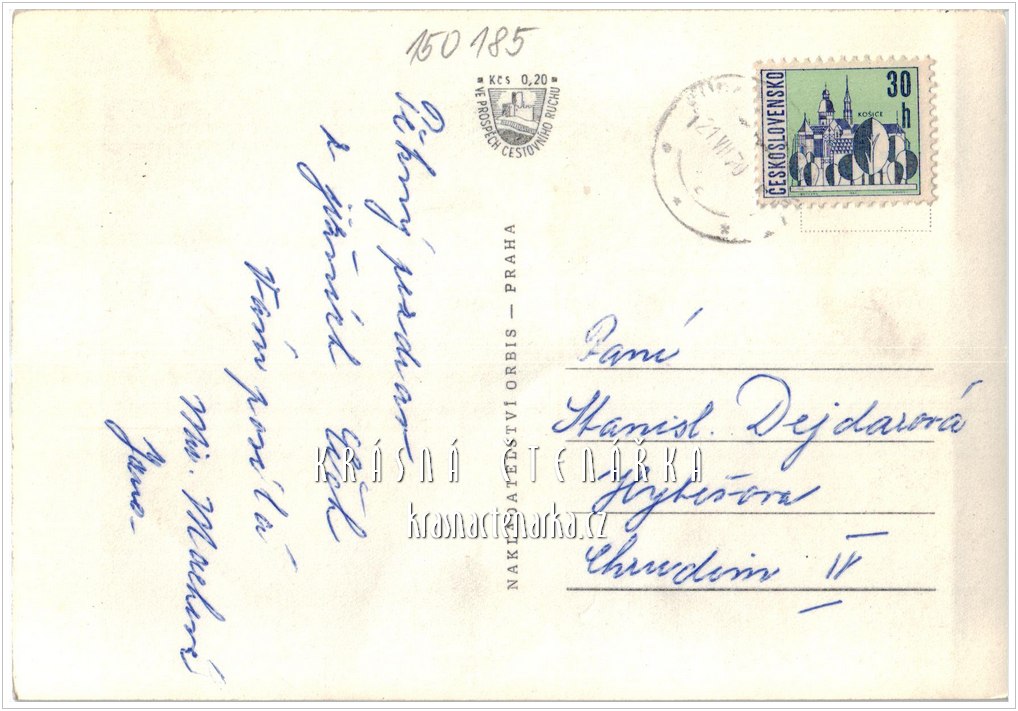 150185
Kčs 0,20
VE PROSPĚCH CESTOVNÍHO RUCHU
ČESKOSLOVENSKO
30 h
KOŠICE
Pěkný pozdrav
z jižních Čech
Vám posílá
Mir.
Jana
NAKLADATELSTVÍ ORBIS — PRAHA
Paní
Stanisl. Dejdarová
Hybešova
Chrudim IV
KRÁSNÁ ČTENÁŘKA
krasnactenarka.cz